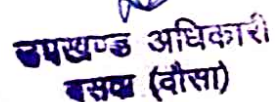 उपखण्ड अधिकारी
बसवा (दौसा)